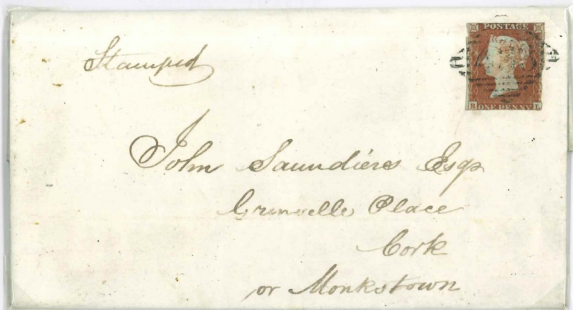 Stamped
POSTAGE
ONE PENNY
John Saundières Esqr
Grenville Place
Cork
or Monkstown